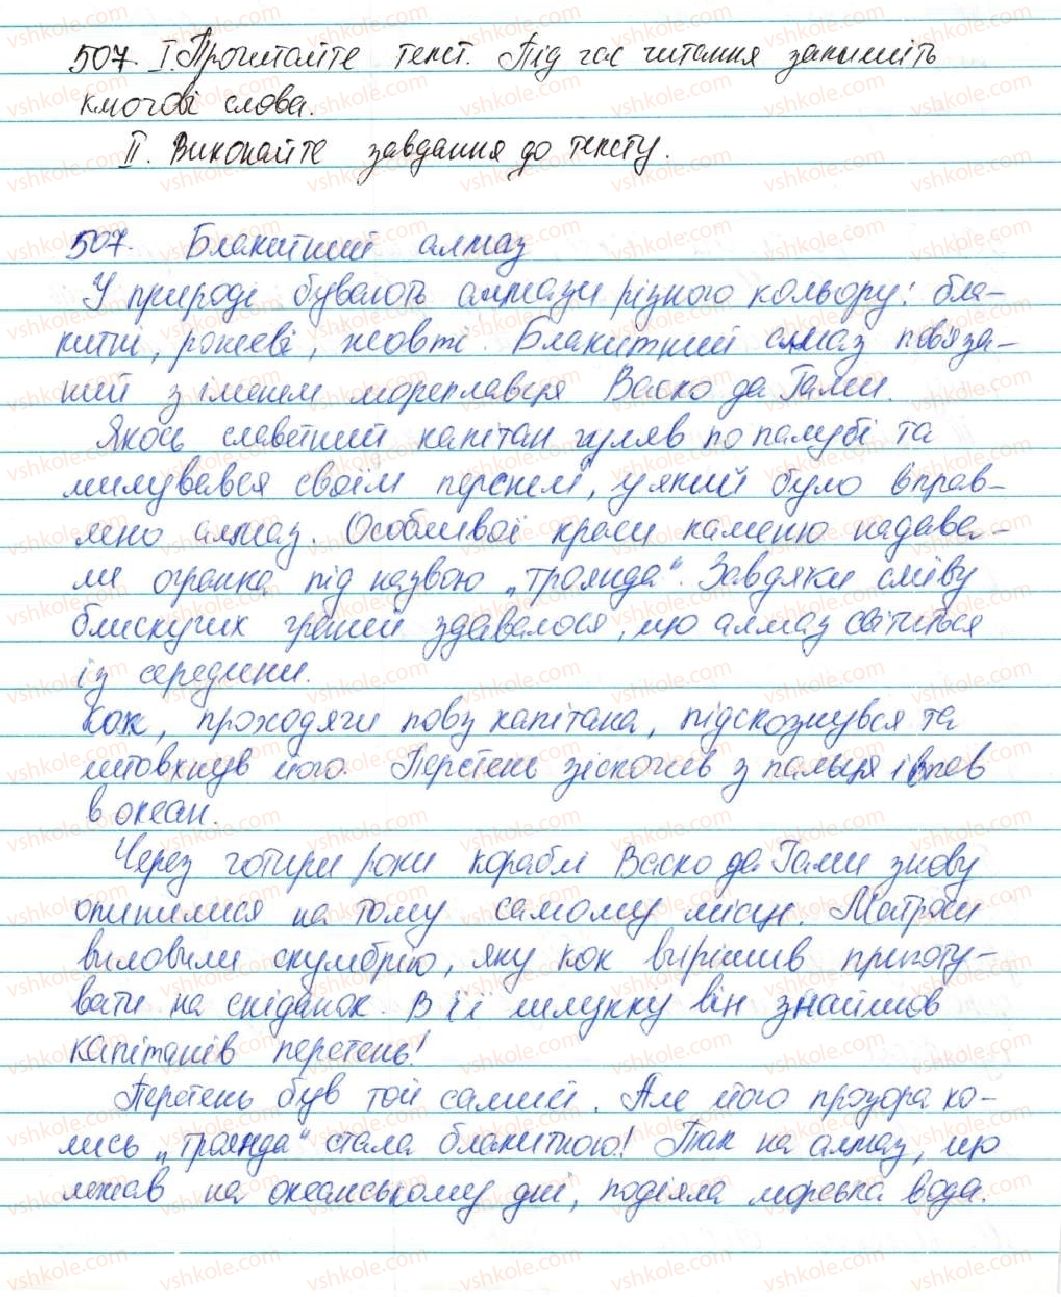 507. I. Прочитайте текст. Під час читання запишіть
ключові слова.
II. Виконайте завдання до тексту.
507. Блакитний алмаз
У природі бувають алмази різного кольору: бла-
китні, рожеві, жовті. Блакитний алмаз пов'яза-
ний з іменем мореплавця Васко да Гами.
Якось славетний капітан гуляв по палубі та
милувався своїм перснем, у який було вправ-
лено алмаз. Особливої краси каменю надава-
ла огранка під назвою „троянда". Завдяки сяйву
блискучих граней здавалося, що алмаз світиться
із середини.
Кок, проходячи повз капітана, підскознувся та
штовхнув його. Перстень зіскочив з пальця і впав
в океан.
Через чотири роки кораблі Васко да Гами знову
опинилися на тому самому місці. Матроси
виловили скумбрію, яку кок вирішив приготу-
вати на сніданок. В її шлунку він знайшов
капітанів перстень!
Перстень був той самий. Але його прозора ко-
лись „троянда" стала блакитною! Так на алмаз, що
лежав на океанському дні, подіяла морська вода.
vshkole.com